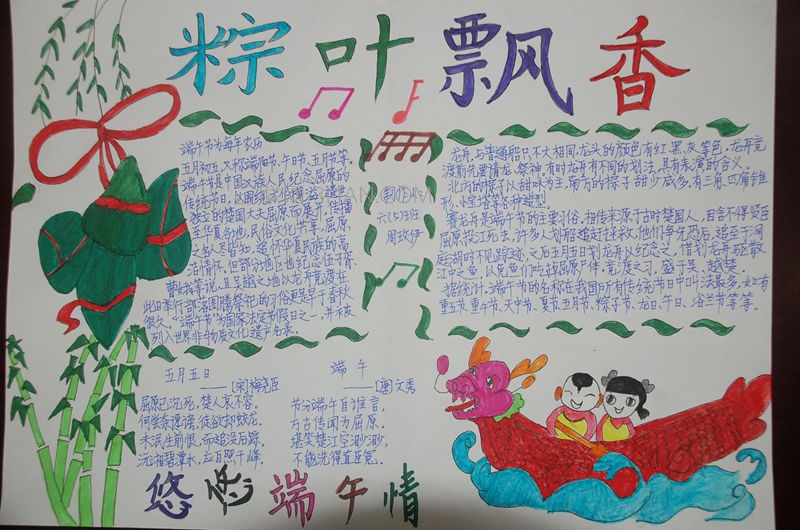 粽叶飘香
端午节为每年农历
五月初五,又称端阳节,午日节,五月节等。
端午节是中国汉族人民纪念屈原的
传统节日,以围绕
独立的楚国大夫屈原而展开,传播
至华夏各地,民俗文化共享,屈原
之名人尽皆知,追怀华夏民族的高
洁情怀。但部分地区也纪念伍子胥、
曹娥等说,且吴越之地以龙舟竞渡在
此日举行部落图腾祭祀的习俗更是早于春秋
很久。“端午节”为国家法定节假日之一,并被
列入世界非物质文化遗产名录。
制作:
六(5)班
龙舟,与普通船只不大相同,龙头的颜色有红、黑、灰等色,龙舟竞
渡前先要请龙、祭神,有时龙舟有不同的划法,具有表演的含义。
北方的粽子以甜味为主,南方的粽子甜少咸多,有三角、四角锥
形、小宝塔等各种造型。
赛龙舟是端午节的主要习俗,相传来源于古时楚国人,因舍不得贤臣
屈原投江死去,许多人划船追赶拯救,他们争先恐后,追至于洞
庭湖时不见踪迹,之后五月五日划龙舟以纪念之,借划龙舟驱散
江中之鱼,以免鱼们吃掉屈原尸体,竞渡之习,盛于吴、越、楚。
据统计,端午节的名称在我国所有传统节日中叫法最多,如:有
重五节、重午节、天中节、夏节、五月节、粽子节、龙日、午日、浴兰节等等。
五月五日
——[宋]梅尧臣
屈原已沉死,楚人哀不容。
何尝奈谗谤,徒欲却蛟龙。
未泯生前恨,而追没后踪。
沅湘碧潭水,应自照千峰。
端午
——[唐]文秀
节分端午自谁言,
万古传闻为屈原。
堪笑楚江空渺渺,
不能洗得直臣冤。
悠悠端午情